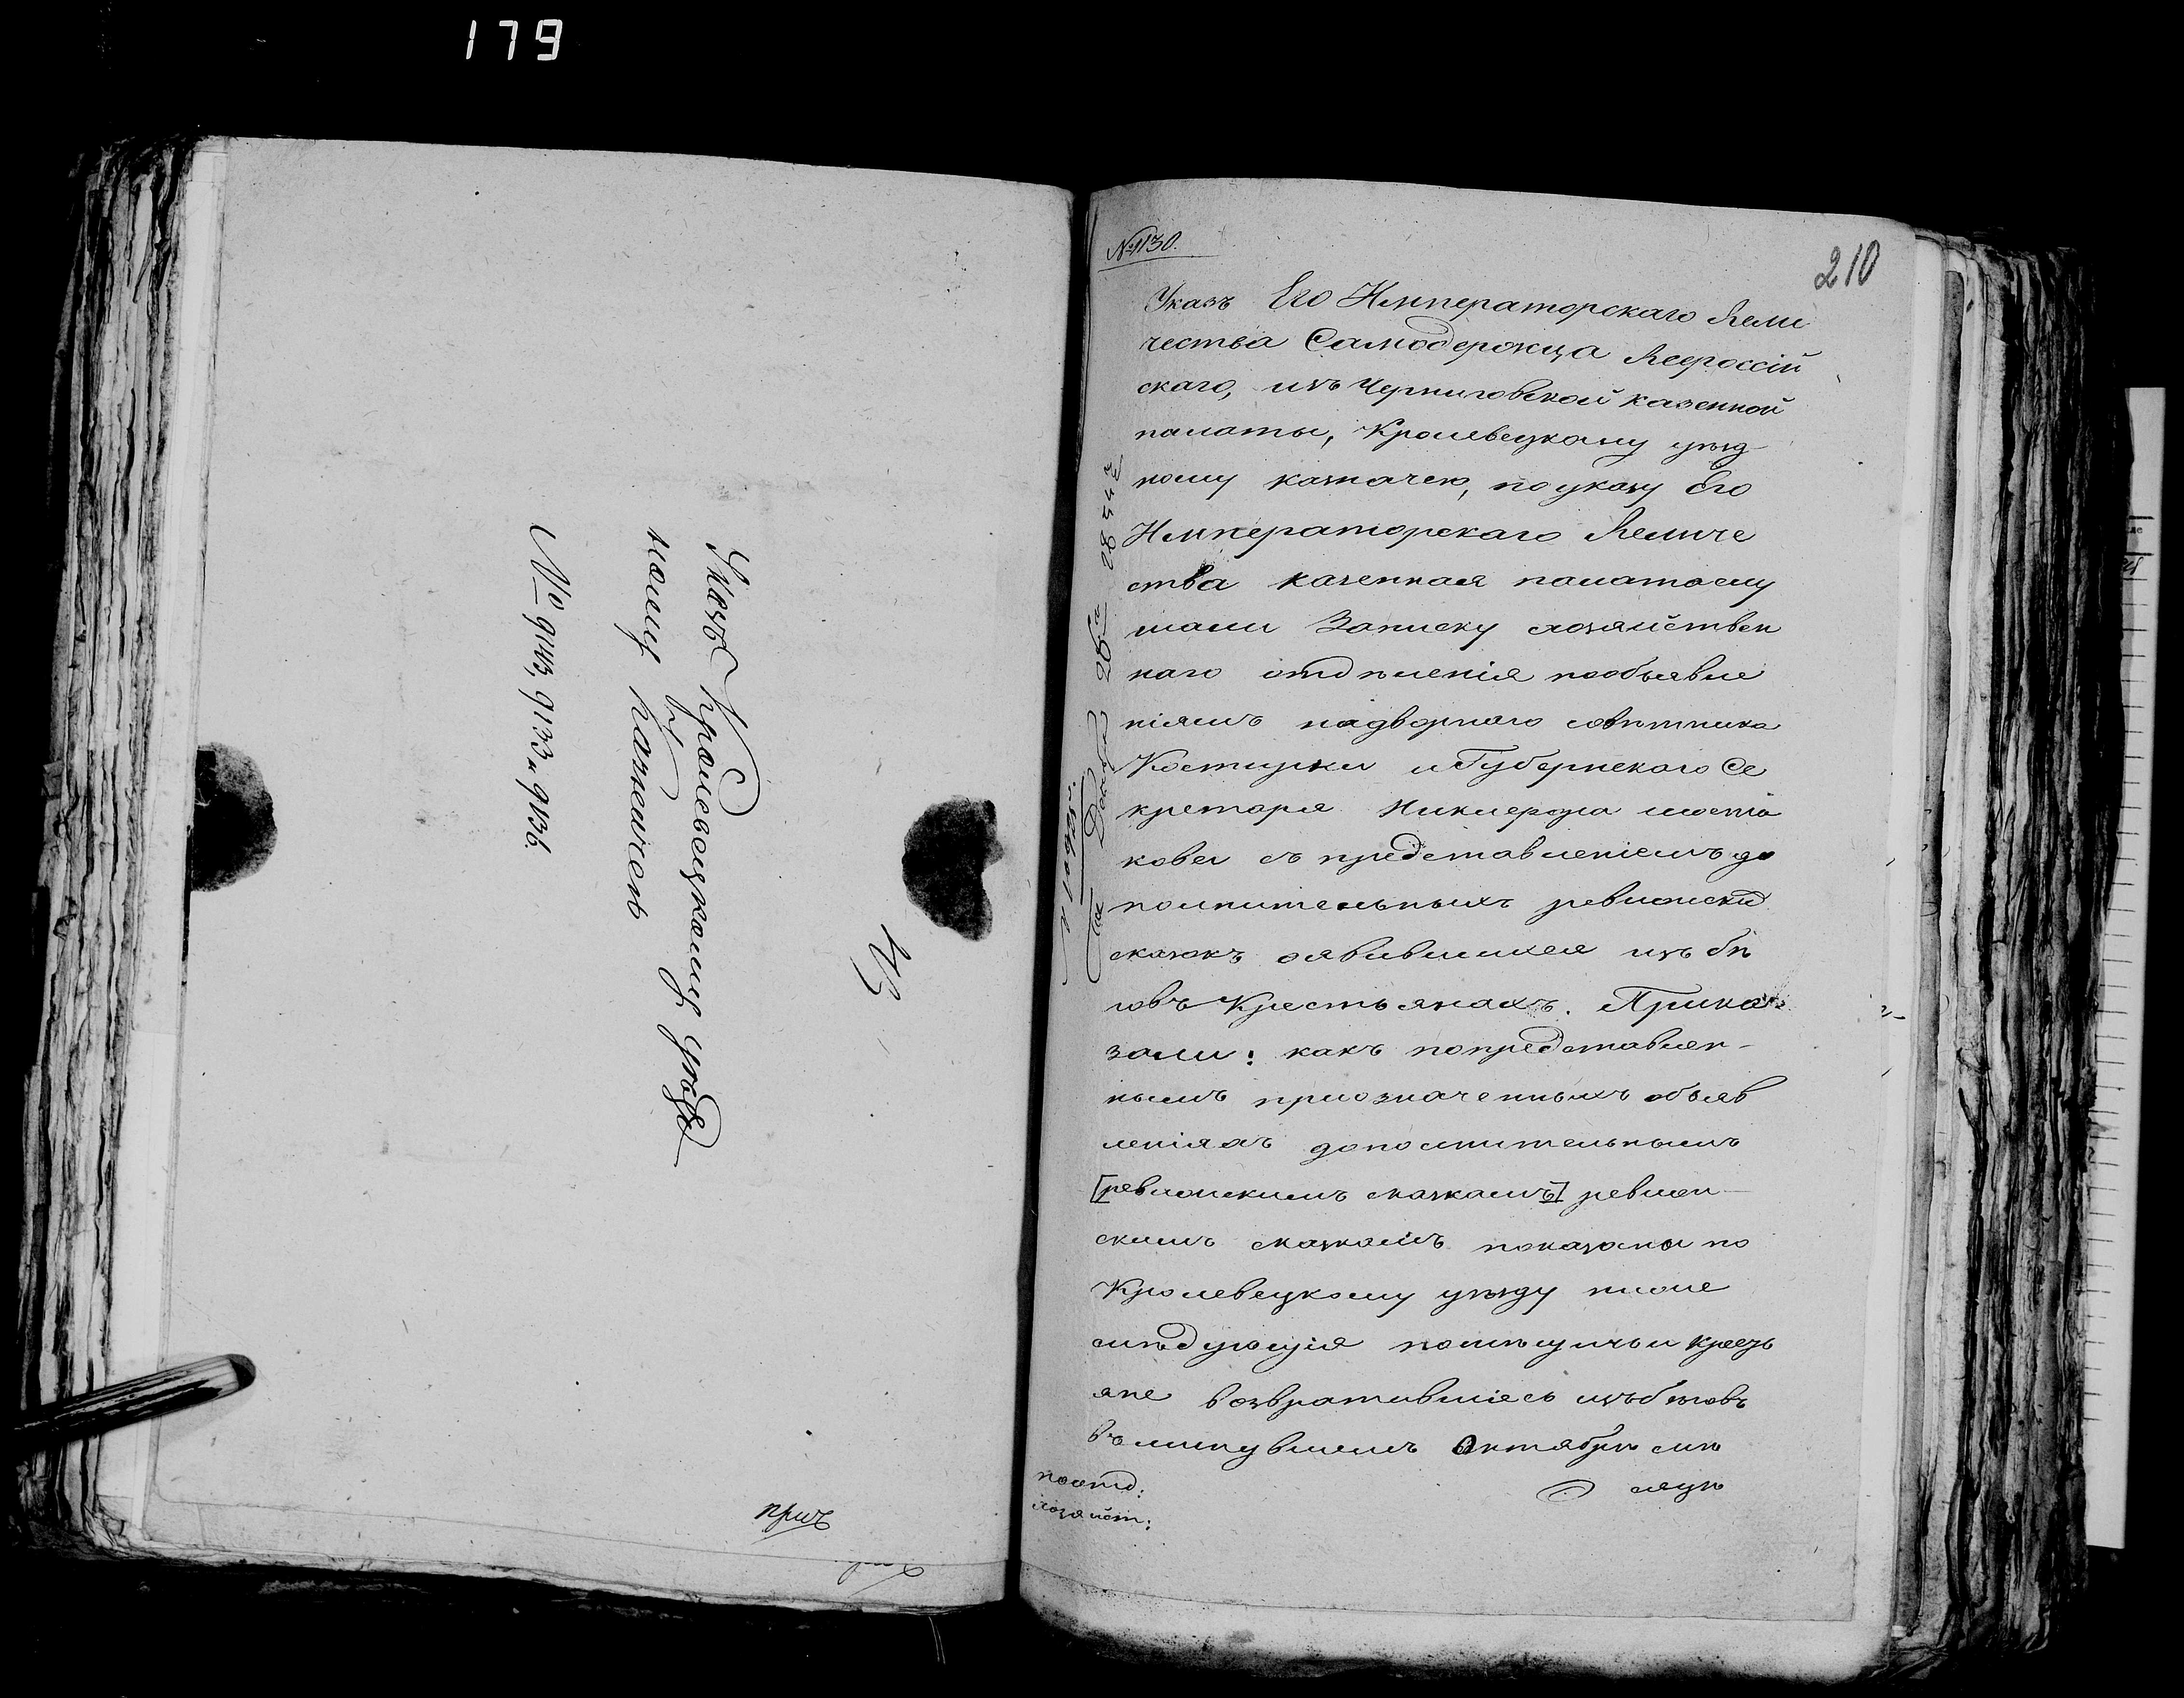 179
Указъ Кролевецкому уѣзд
ному казначею
№ 9143, 9133 и 9136.
прич
№ 1130.
210
Указъ Его Императорскаго Вели
чества Самодержца Всероссій
скаго, изъ Черниговской казенной
палаты, Кролевецкому уѣзд
ному казначею, по указу Его
Императорскаго Величе
ства казенная палата слу
шали Записку хозяйствен
наго отдѣленія пообъявле
ніямъ надворнаго совѣтника
Костирки и Губернскаго Се
кретаря Никифора
съ представленіемъ до
полнительныхъ ревизскихъ
сказокъ оявившихся изъ бѣ
говъ Крестьянахъ. Прика
зали: какъ попредставлен
нымъ приозначенныхъ объяв
леніяхъ дополнительнымъ
[ревизскимъ сказкамъ] ревиз
скимъ сказкамъ показаны по
Кролевецкому уѣзду ниже
слѣдующія помѣщичьи кресть
яне возвратившіесь изъ бѣговъ
въ минувшемъ Октябрѣ мѣ
сяцѣ
поотд:
хозяйст: